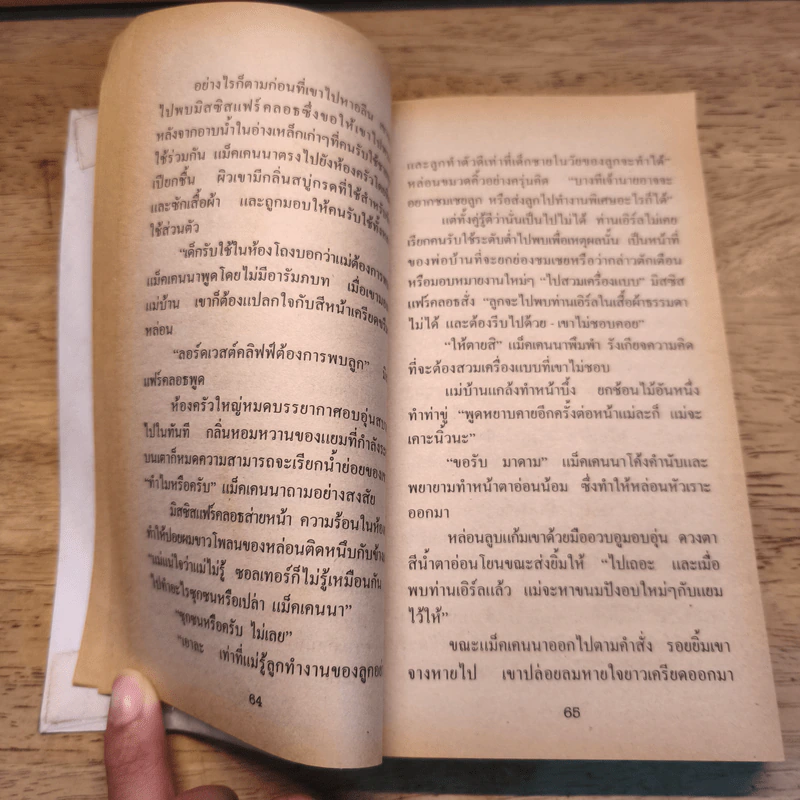 อย่างไรก็ตามก่อนที่เขาไปหาอลีน
ไปพบมิสซิสแฟร์คลอธซึ่งขอให้เขาไป
หลังจากอาบน้ำในอ่างเหล็กเก่าๆที่คนรับใช้
ใช้ร่วมกัน แม็คเคนนาตรงไปยังห้องครัว
เปียกชื้น ผิวเขามีกลิ่นสบู่กรดที่ใช้สำหรับ
และซักเสื้อผ้า และถูกมอบให้คนรับใช้
ใช้ส่วนตัว
“เด็กรับใช้ในห้องโถงบอกว่าแม่ต้องการ
แม็คเคนนาพูดโดยไม่มีอารัมภบท เมื่อเขา
แม่บ้าน เขาก็ต้องแปลกใจกับสีหน้าเครียด
หล่อน
“ลอร์ดเวสต์คลิฟฟ์ต้องการพบลูก”
แฟร์คลอธพูด
ห้องครัวใหญ่หมดบรรยากาศอบอุ่น
ไปในทันที กลิ่นหอมหวานของแยมที่กำลัง
บนเตาก็หมดความสามารถจะเรียกน้ำย่อยของ
“ทำไมหรือครับ” แม็คเคนนาถามอย่างสงสัย
มิสซิสแฟร์คลอธส่ายหน้า ความร้อนในห้อง
ทำให้ปอยผมขาวโพลนของหล่อนติดหนึบกับข้าง
“แม่แน่ใจว่าแม่ไม่รู้ ซอลเทอร์ก็ไม่รู้เหมือนกัน
ไปทำอะไรซุกซนหรือเปล่า แม็คเคนนา”
“ซุกซนหรือครับ ไม่เลย”
“เอาละ เท่าที่แม่รู้ลูกทำงานของลูก
64
และลูกทำตัวดีเท่าที่เด็กชายในวัยของลูกจะทำได้”
หล่อนขมวดคิ้วอย่างครุ่นคิด “บางทีเจ้านายอาจจะ
อยากชมเชยลูก หรือส่งลูกไปทำงานพิเศษอะไรก็ได้”
แต่ทั้งคู่รู้ดีว่านั่นเป็นไปไม่ได้ ท่านเอิร์ลไม่เคย
เรียกคนรับใช้ระดับต่ำไปพบเพื่อเหตุผลนั้น เป็นหน้าที่
ของพ่อบ้านที่จะยกย่องชมเชยหรือว่ากล่าวตักเตือน
หรือมอบหมายงานใหม่ๆ “ไปสวมเครื่องแบบ” มิสซิส
แฟร์คลอธสั่ง “ลูกจะไปพบท่านเอิร์ลในเสื้อผ้าธรรมดา
ไม่ได้ และต้องรีบไปด้วย - เขาไม่ชอบคอย”
“ให้ตายสิ” แม็คเคนนาพึมพำ รังเกียจความคิด
ที่จะต้องสวมเครื่องแบบที่เขาไม่ชอบ
แม่บ้านแกล้งทำหน้าบึ้ง ยกช้อนไม้อันหนึ่ง
ทำท่าขู่ “พูดหยาบคายอีกครั้งต่อหน้าแม่ละก็ แม่จะ
เคาะนิ้วนะ”
“ขอรับ มาดาม” แม็คเคนนาโค้งคำนับและ
พยายามทำหน้าตาอ่อนน้อม ซึ่งทำให้หล่อนหัวเราะ
ออกมา
หล่อนลูบแก้มเขาด้วยมืออวบอูมอบอุ่น ดวงตา
สีน้ำตาอ่อนโยนขณะส่งยิ้มให้ “ไปเถอะ และเมื่อ
พบท่านเอิร์ลแล้ว แม่จะหาขนมปังอบใหม่ๆกับแยม
ไว้ให้”
ขณะแม็คเคนนาออกไปตามคำสั่ง รอยยิ้มเขา
จางหายไป เขาปล่อยลมหายใจยาวเครียดออกมา
65